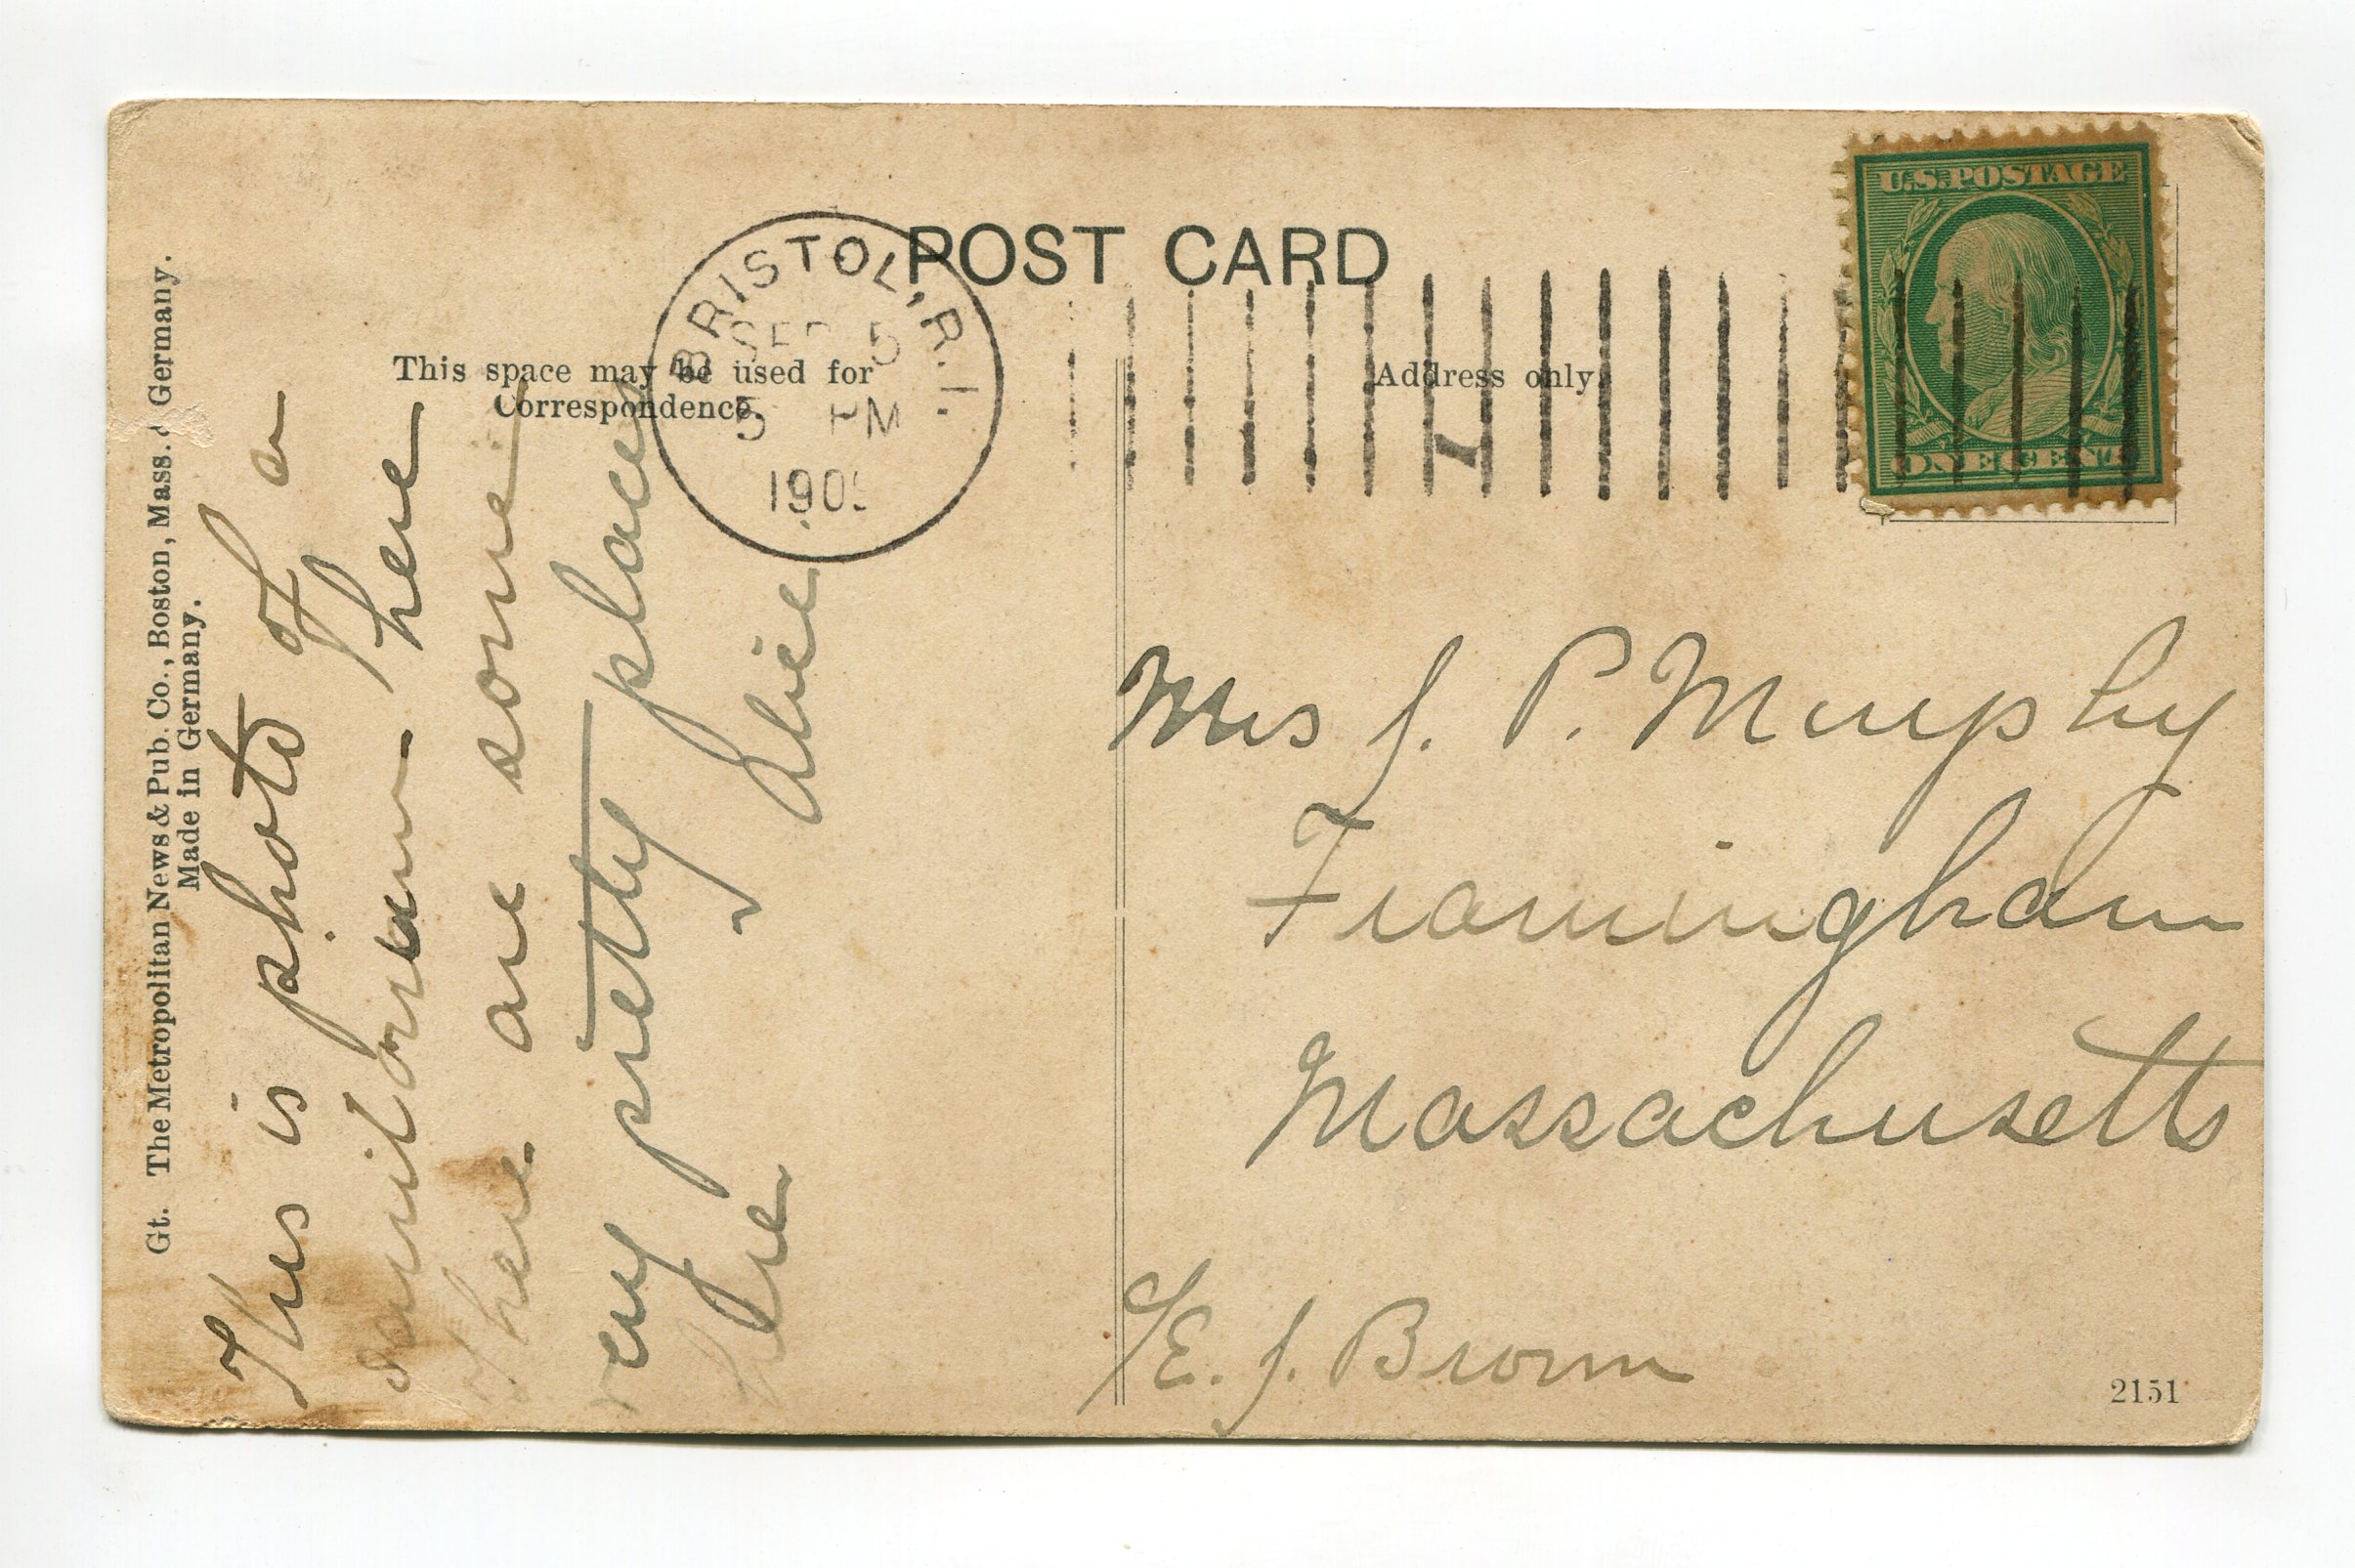 POST CARD
U.S. POSTAGE
ONE CENT
BRISTOL, R.I.
SEP 5
5 PM
190
This space may be used for
Correspondence.
Address only
Gt. The Metropolitan News & Pub. Co., Boston, Mass. & Germany.
Made in Germany.
This is photo of a
sanitorium here
There are some
very pretty places
here Alice.
Mrs J. P. Murphy
Framingham
Massachusetts
c/E. J. Brown
2151